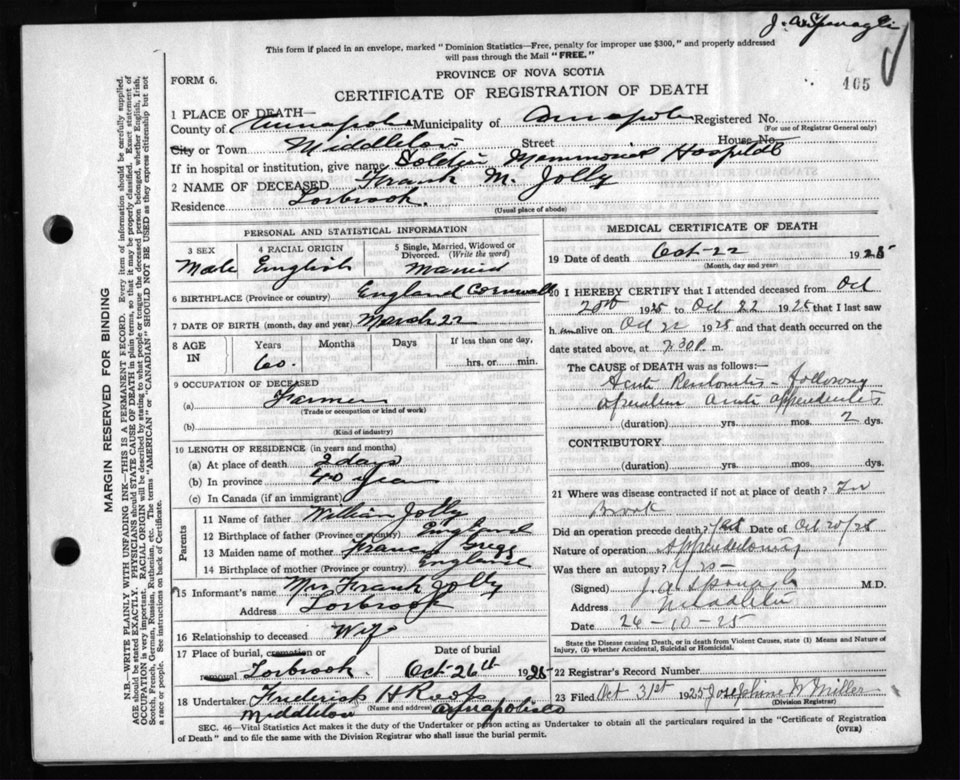 J. A. Sponagle
This form if placed in an envelope, marked "Dominion Statistics—Free, penalty for improper use $300," and properly addressed
will pass through the Mail "FREE."
FORM 6.
PROVINCE OF NOVA SCOTIA
405
CERTIFICATE OF REGISTRATION OF DEATH
1 PLACE OF DEATH—
County of Annapolis Municipality of Annapolis Registered No.
(For use of Registrar General only)
City or Town Middleton Street House No.
If in hospital or institution, give name Soldier Memorial Hospital
2 NAME OF DECEASED Frank M. Jolly
Residence Torbrook.
(Usual place of abode)
PERSONAL AND STATISTICAL INFORMATION
3 SEX 4 RACIAL ORIGIN 5 Single, Married, Widowed or
Divorced. (Write the word)
Male English Married
6 BIRTHPLACE (Province or country) England Cornwall
7 DATE OF BIRTH (month, day and year) March 22
8 AGE IN Years Months Days If less than one day,
60. hrs. or min.
9 OCCUPATION OF DECEASED
(a) Farmer
(Trade or occupation or kind of work)
(b)
(Kind of industry)
10 LENGTH OF RESIDENCE (in years and months)
(a) At place of death 2 days
(b) In province 40 years
(c) In Canada (if an immigrant)
Parents
11 Name of father William Jolly
12 Birthplace of father (Province or country) England
13 Maiden name of mother Gregg
14 Birthplace of mother (Province or country)
15 Informant's name Mrs Frank Jolly
Address Torbrook
16 Relationship to deceased Wife
17 Place of burial, cremation or Date of burial
removal Torbrook. Oct 26th 1925
18 Undertaker Frederick H Roop
(Name and address)
Middleton Annapolis Co
MEDICAL CERTIFICATE OF DEATH
19 Date of death Oct-22 1925
(Month, day and year)
20 I HEREBY CERTIFY that I attended deceased from Oct
20th 1925 to Oct 22 1925 that I last saw
him alive on Oct 22 1925 and that death occurred on the
date stated above, at 2.30 P. m.
The CAUSE of DEATH was as follows:—
Acute Peritonitis - following
operation acute appendicitis
(duration) yrs. mos. 2 dys.
CONTRIBUTORY.
(duration) yrs. mos. dys.
21 Where was disease contracted if not at place of death?
Brook
Did an operation precede death? Date of Oct 20/25
Nature of operation Appendectomy
Was there an autopsy?
(Signed) J. A. Sponagle M.D.
Address Middleton
Date 26-10-25
State the Disease causing Death, or in death from Violent Causes, state (1) Means and Nature of
Injury, (2) whether Accidental, Suicidal or Homicidal.
22 Registrar's Record Number
23 Filed Oct 31st 1925 Josephine W Miller
(Division Registrar)
SEC. 46—Vital Statistics Act makes it the duty of the Undertaker or person acting as Undertaker to obtain all the particulars required in the "Certificate of Registration
of Death" and to file the same with the Division Registrar who shall issue the burial permit.
(OVER)
MARGIN RESERVED FOR BINDING
N.B.—WRITE PLAINLY WITH UNFADING INK—THIS IS A PERMANENT RECORD. Every item of information should be carefully supplied.
AGE should be stated EXACTLY. PHYSICIANS should STATE CAUSE OF DEATH in plain terms, so that it may be properly classified. Exact statement of
OCCUPATION is very important. RACIAL ORIGIN will be described by stating to what people or tongue the deceased person belonged, whether English, Irish,
Scotch, French, German, Russian, Ruthenian, etc. The terms "AMERICAN" or "CANADIAN" SHOULD NOT BE USED as they express citizenship but not
a race or people. See instructions on back of Certificate.